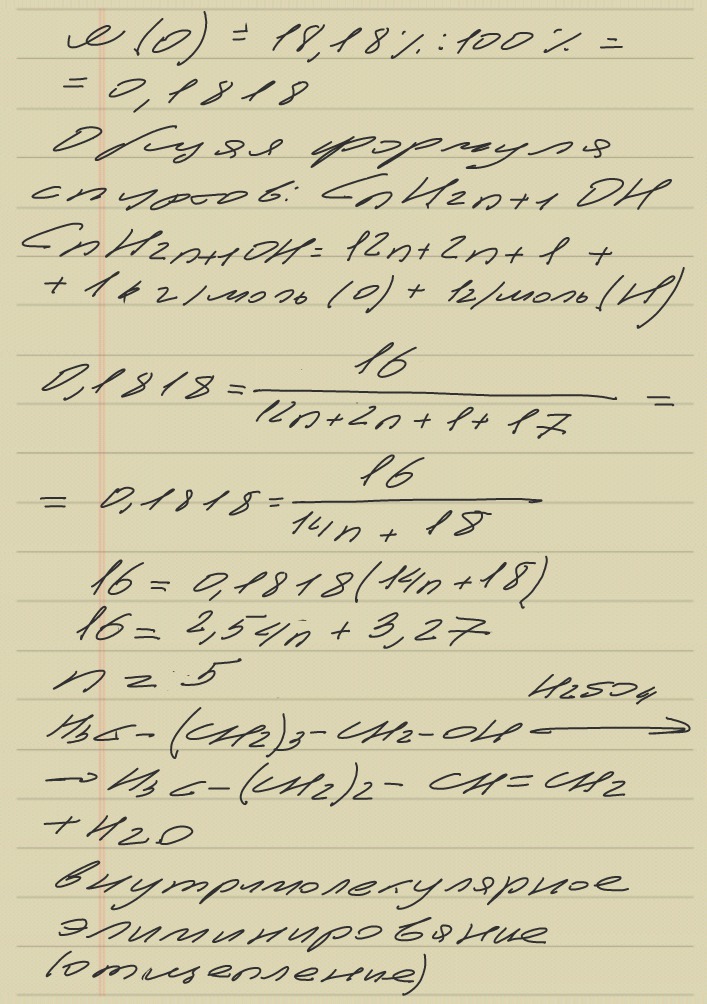 ω(O) = 18,18% : 100% =
= 0,1818
Общая формула
спиртов: CnH2n+1 OH
CnH2n+1OH = 12n+2n+1 +
+ 16 г/моль (O) + 1г/моль (H)
0,1818 = 16 / (12n+2n+1+17) =
= 0,1818 = 16 / (14n + 18)
16 = 0,1818(14n+18)
16 = 2,54n + 3,27
n = 5
H3C-(CH2)3-CH2-OH H2SO4 →
→ H3C-(CH2)2-CH=CH2
+ H2O
внутримолекулярное
элиминирование
(отщепление)